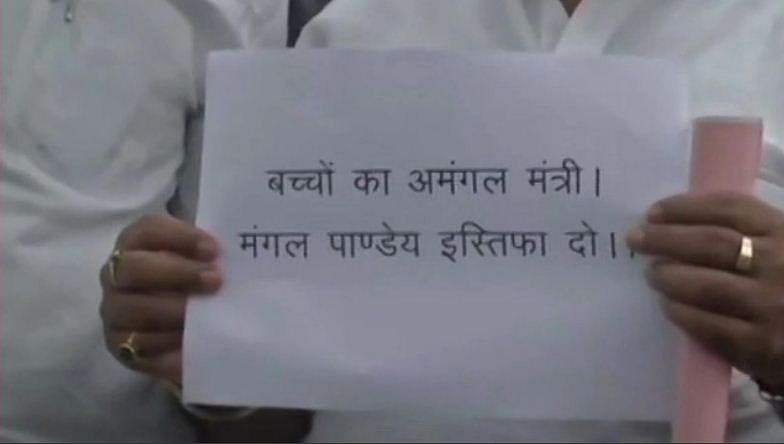 बच्चों का अमंगल मंत्री।
मंगल पाण्डेय इस्तिफा दो।।